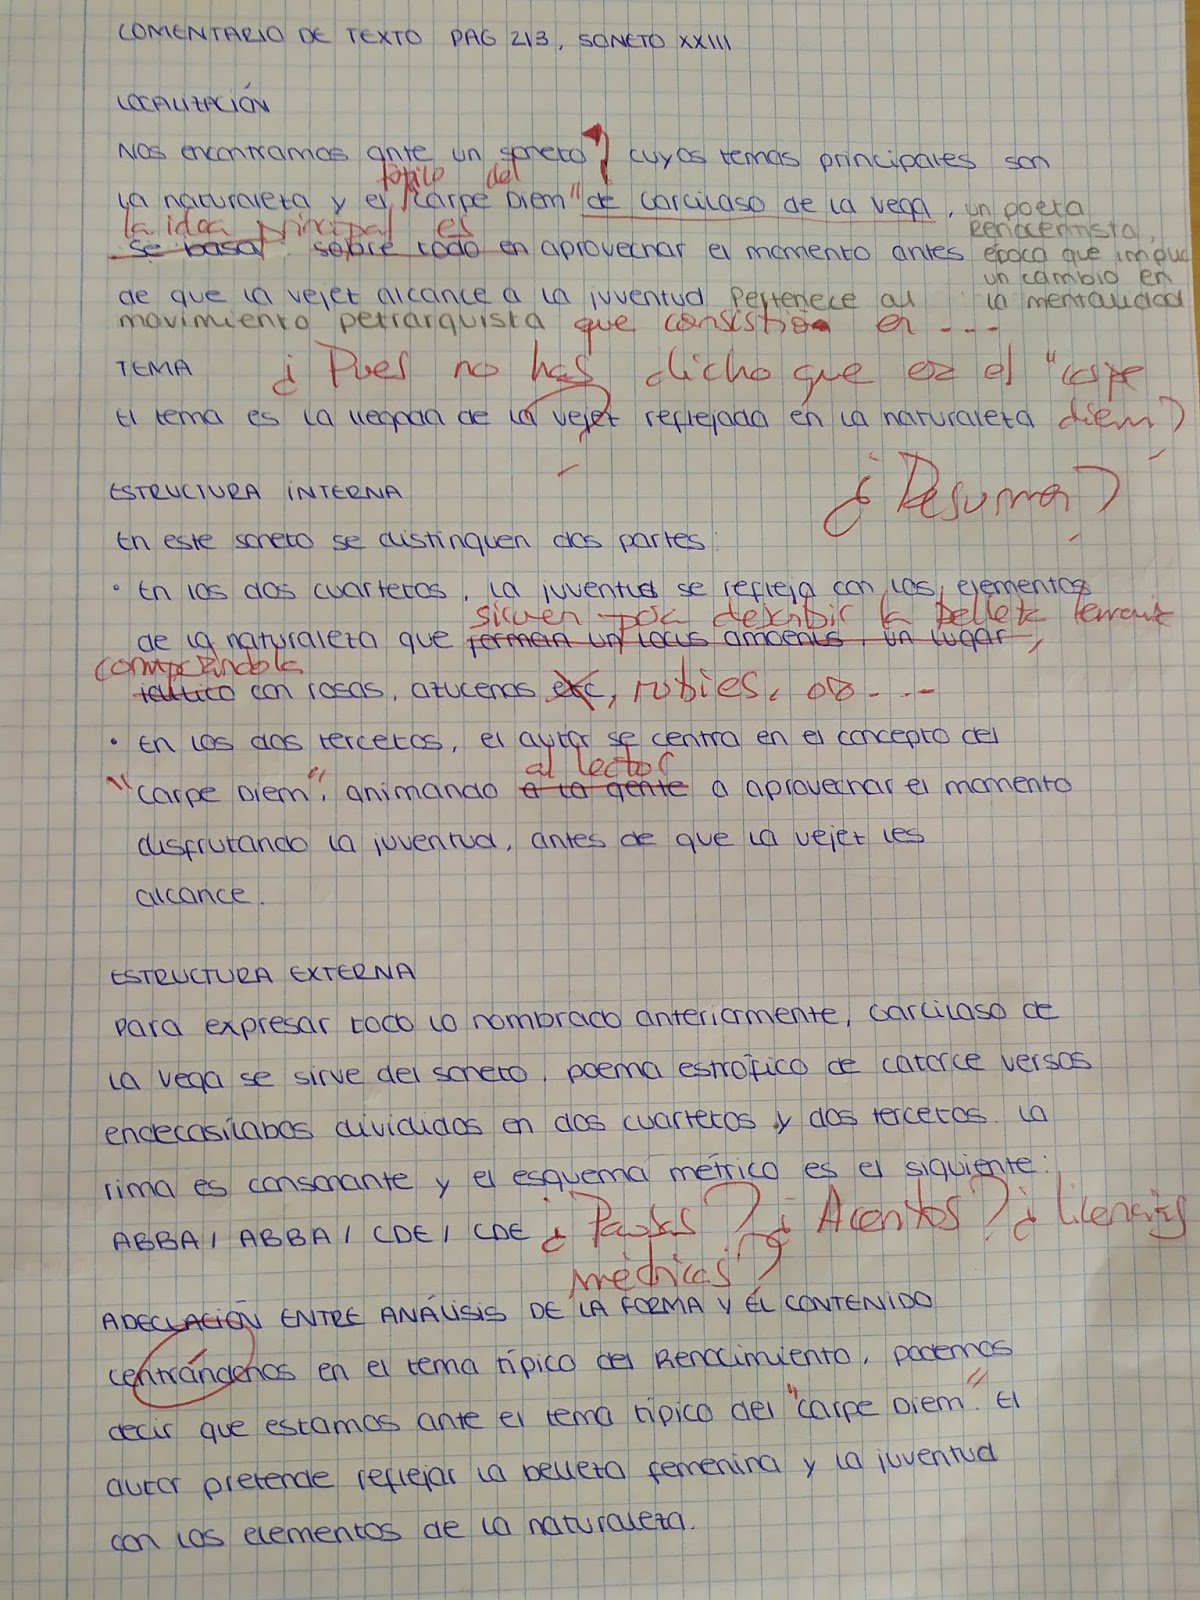 COMENTARIO DE TEXTO PAG 213, SONETO XXIII
LOCALIZACIÓN
Nos encontramos ante un soneto, cuyos temas principales son
tópico del
la naturaleza y el "Carpe Diem" de Garcilaso de la Vega, un poeta
renacentista,
la idea principal es
se basa sobre todo en aprovechar el momento antes época que impuso
un cambio en
de que la vejez alcance a la juventud. Pertenece al la mentalidad
movimiento petrarquista que consistió en ...
TEMA ¿Pues no has dicho que es el "carpe
El tema es la llegada de la vejez reflejada en la naturaleza diem?
ESTRUCTURA INTERNA ¿Resumen?
En este soneto se distinguen dos partes:
· En los dos cuartetos, la juventud se refleja con los elementos
sirven para describir la belleza femenina
de la naturaleza que forman un locus amoenus, un lugar,
comparándola
idílico con rosas, azucenas etc, rubíes, oro ...
· En los dos tercetos, el autor se centra en el concepto del
al lector
"Carpe Diem", animando a la gente a aprovechar el momento
disfrutando la juventud, antes de que la vejez les
alcance.
ESTRUCTURA EXTERNA
Para expresar todo lo nombrado anteriormente, Garcilaso de
la Vega se sirve del soneto, poema estrófico de catorce versos
endecasílabos divididos en dos cuartetos y dos tercetos. La
rima es consonante y el esquema métrico es el siguiente:
ABBA/ ABBA/ CDE/ CDE ¿Pausas? ¿Acentos? ¿licencias
métricas?
ADECUACIÓN ENTRE ANÁLISIS DE LA FORMA Y EL CONTENIDO
Centrándonos en el tema típico del Renacimiento, podemos
decir que estamos ante el tema típico del "Carpe Diem". El
autor pretende reflejar la belleza femenina y la juventud
con los elementos de la naturaleza.